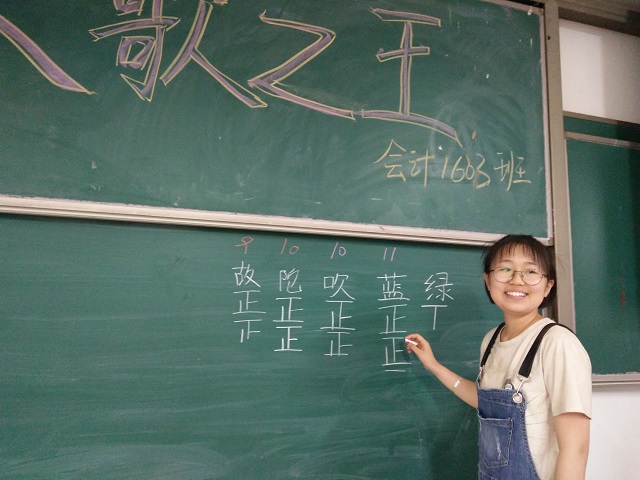 歌之王
会计1603班
9 10 10 11
故 陀 吹 蓝 绿
正 正 正 正 丅
正 正 正
一